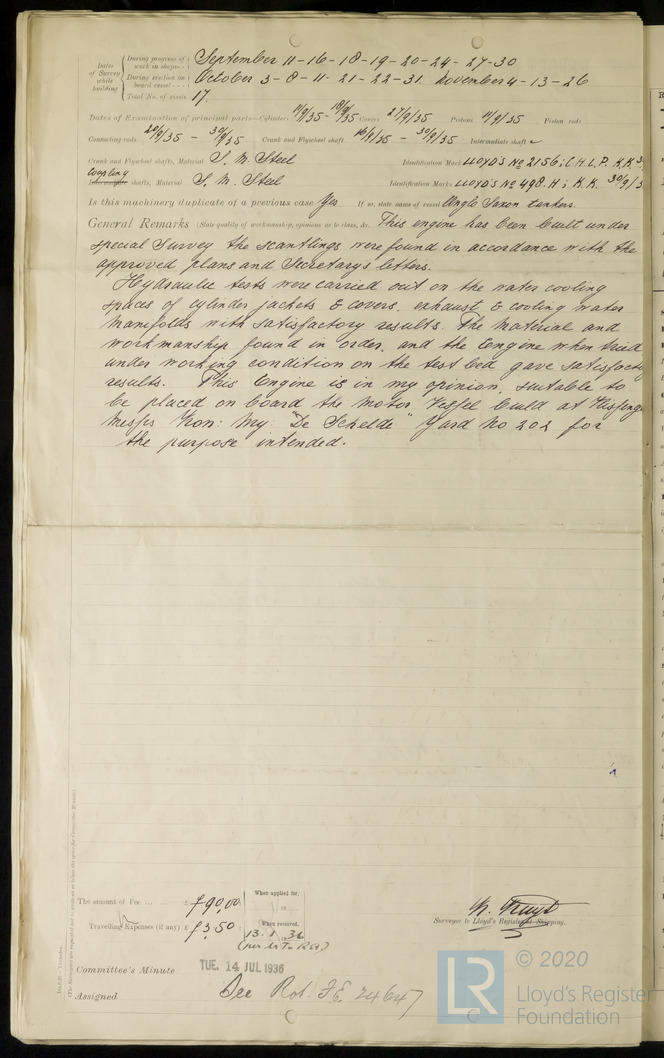 Dates of Survey while building
During progress of work in shops - - September 11-16-18-19-20-24-27-30
During erection on board vessel - - - October 3-8-11-21-22-31. November 4-13-26
Total No. of visits 17.
Dates of Examination of principal parts—Cylinders 11/9/35-18/9/35 Covers 27/9/35 Pistons 11/9/35 Piston rods
Connecting rods 20/9/35 - 30/9/35 Crank and Flywheel shaft 16/9/35 - 30/9/35 Intermediate shaft
Crank and Flywheel shafts, Material S. M. Steel Identification Mark LLOYD'S No 2156; C.H.L.P. K.K.
Coupling
Intermediate shafts, Material S. M. Steel Identification Marks LLOYD'S No 498. H; K.K. 30/9/3
Is this machinery duplicate of a previous case Yes If so, state name of vessel Anglo Saxon tankers.
General Remarks (State quality of workmanship, opinions as to class, &c. This engine has been built under
special Survey the scantlings were found in accordance with the
approved plans and Secretary's letters.
Hydraulic tests were carried out on the water cooling
spaces of cylinder jackets & covers, exhaust & cooling water
manifolds with satisfactory results. The Material and
workmanship found in order, and the Engine when tried
under working condition on the test bed gave satisfacto
results. This Engine is in my opinion, suitable to
be placed on board the Motor Vessel build at Flissing
Messrs Kon: My. "De Schelde" Yard No 202 for
the purpose intended.
The amount of Fee ... £ ƒ90,00 When applied for,
19
Travelling Expenses (if any) £ ƒ3,50 When received,
13.1.36
Surveyor to Lloyd's Register of Shipping.
Committee's Minute TUE. 14 JUL 1936
Assigned See Rot. F.E. 24647
LR © 2020
Lloyd's Register
Foundation